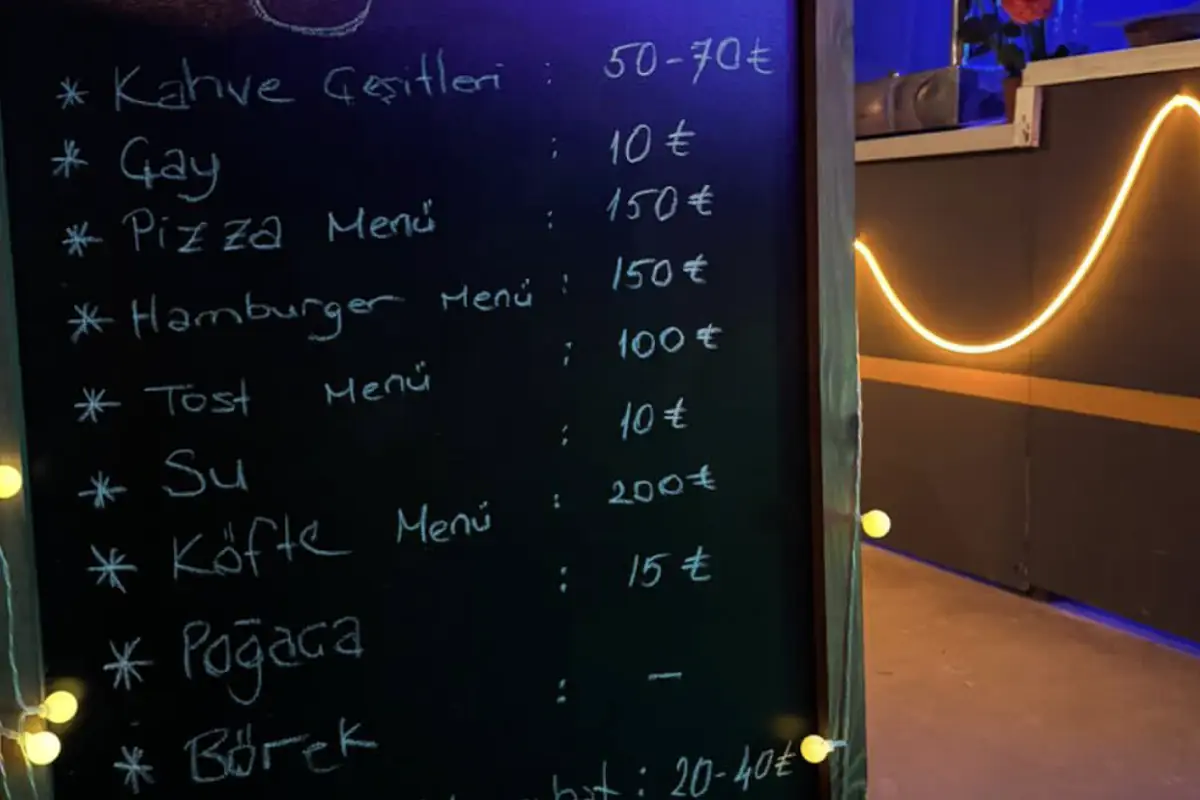 * Kahve Çeşitleri : 50-70₺
* Çay : 10₺
* Pizza Menü : 150₺
* Hamburger Menü : 150₺
* Tost Menü : 100₺
* Su : 10₺
* Köfte Menü : 200₺
* Poğaça : 15₺
* Börek : —
: 20-40₺